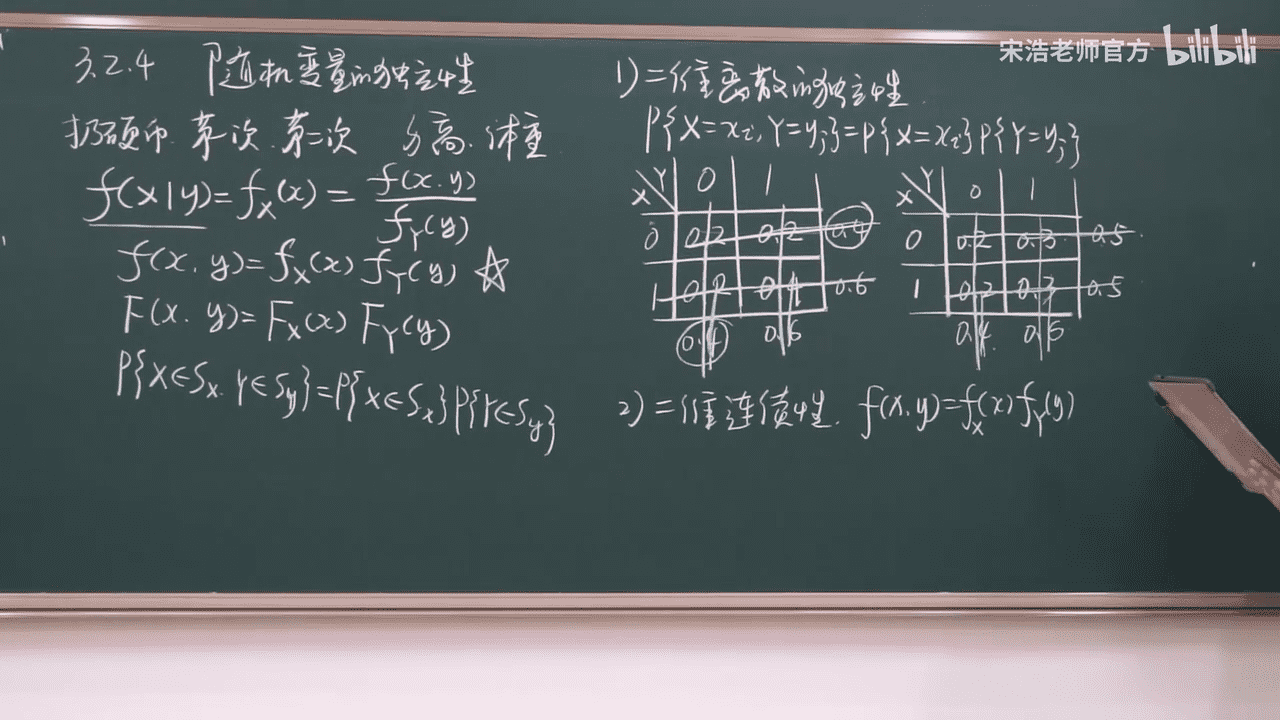 宋浩老师官方 bilibili
3.2.4 随机变量的独立性
扔硬币.第一次.第二次 身高.体重
f(x|y)=f_X(x)=f(x.y)/f_Y(y)
f(x.y)=f_X(x)f_Y(y)☆
F(x.y)=F_X(x)F_Y(y)
P{X∈S_x.Y∈S_y}=P{X∈S_x}P{Y∈S_y}
1)二维离散的独立性.
P{X=x_i,Y=y_j}=P{X=x_i}P{Y=y_j}
X\Y 0 1
0 0.2 0.2 0.4
1 0.2 0.4 0.6
0.4 0.6
X\Y 0 1
0 0.2 0.3 0.5
1 0.2 0.3 0.5
0.4 0.6
2)二维连续性. f(x.y)=f_X(x)f_Y(y)